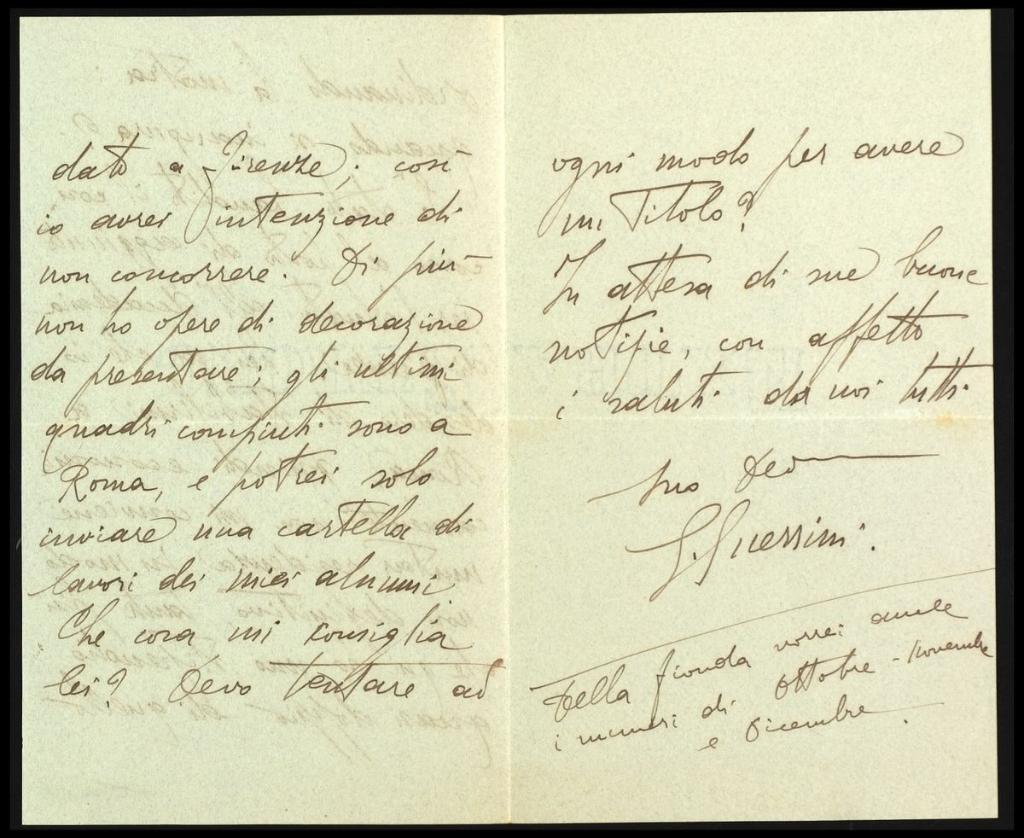 dato a Firenze; così
io avrei intenzione di
non concorrere. Di più
non ho opere di decorazione
da presentare; gli ultimi
quadri compiuti sono a
Roma, e potrei solo
inviare una cartella di
lavori dei miei alunni.
Che cosa mi consiglia
lei? Devo tentare ad
ogni modo per avere
un Titolo?
In attesa di sue buone
notizie, con affetto
i saluti da noi tutti.
Suo Dev
G. Guerrini.
Della fionda vorrei avere
i numeri di Ottobre - Novembre
e Dicembre.